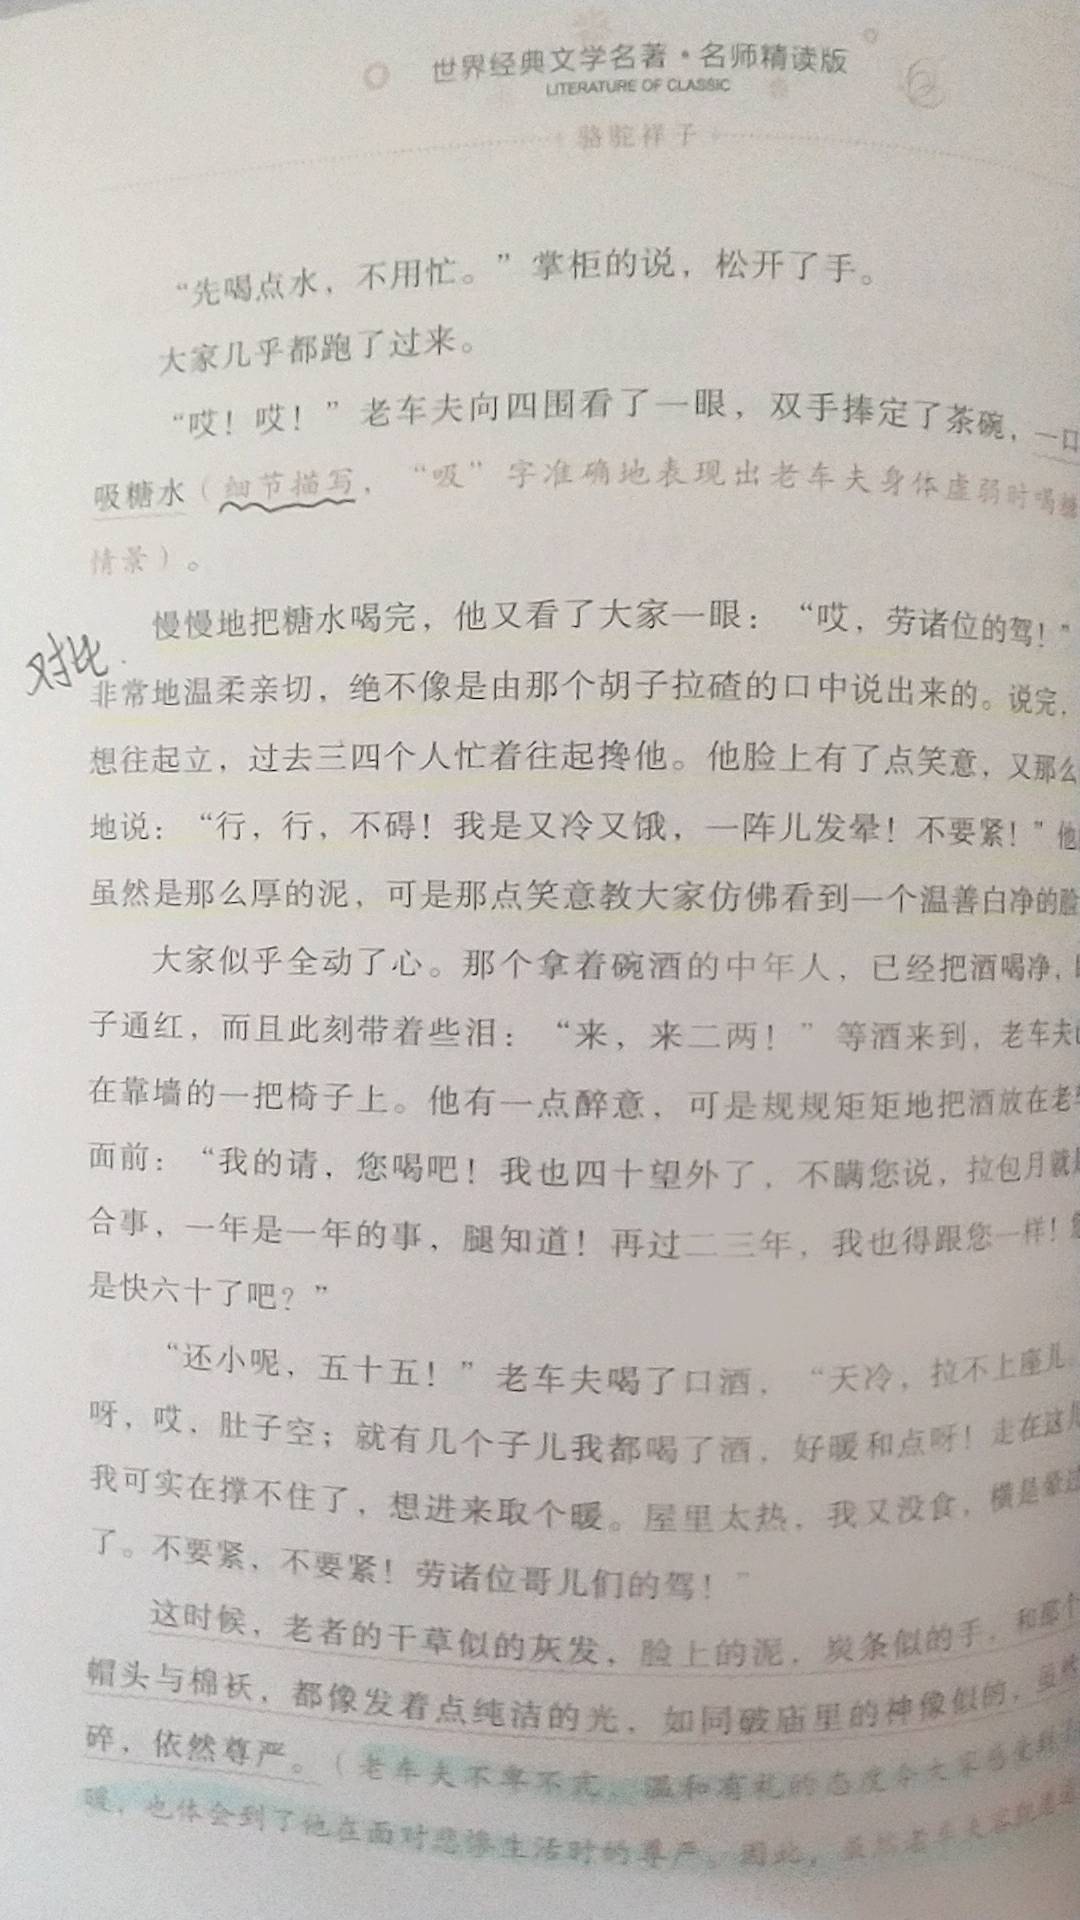 世界经典文学名著·名师精读版
LITERATURE OF CLASSIC
骆驼祥子
“先喝点水，不用忙。”掌柜的说，松开了手。
大家几乎都跑了过来。
“哎！哎！”老车夫向四围看了一眼，双手捧定了茶碗，一口
吸糖水（细节描写，“吸”字准确地表现出老车夫身体虚弱时喝糖
情景）。
慢慢地把糖水喝完，他又看了大家一眼：“哎，劳诸位的驾！”
对比
非常地温柔亲切，绝不像是由那个胡子拉碴的口中说出来的。说完，
想往起立，过去三四个人忙着往起搀他。他脸上有了点笑意，又那么
地说：“行，行，不碍！我是又冷又饿，一阵儿发晕！不要紧！”他
虽然是那么厚的泥，可是那点笑意教大家仿佛看到一个温善白净的脸
大家似乎全动了心。那个拿着碗酒的中年人，已经把酒喝净，
子通红，而且此刻带着些泪：“来，来二两！”等酒来到，老车夫
在靠墙的一把椅子上。他有一点醉意，可是规规矩矩地把酒放在老
面前：“我的请，您喝吧！我也四十望外了，不瞒您说，拉包月就
合事，一年是一年的事，腿知道！再过二三年，我也得跟您一样！您
是快六十了吧？”
“还小呢，五十五！”老车夫喝了口酒，“天冷，拉不上座儿。
呀，哎，肚子空；就有几个子儿我都喝了酒，好暖和点呀！走在这儿
我可实在撑不住了，想进来取个暖。屋里太热，我又没食，横是晕过
了。不要紧，不要紧！劳诸位哥儿们的驾！”
这时候，老者的干草似的灰发，脸上的泥，炭条似的手，和那个
帽头与棉袄，都像发着点纯洁的光，如同破庙里的神像似的，虽然
碎，依然尊严。（老车夫不卑不亢、温和有礼的态度令大家感觉到
暖，也体会到了他在面对悲惨生活时的尊严。因此，虽然老车夫